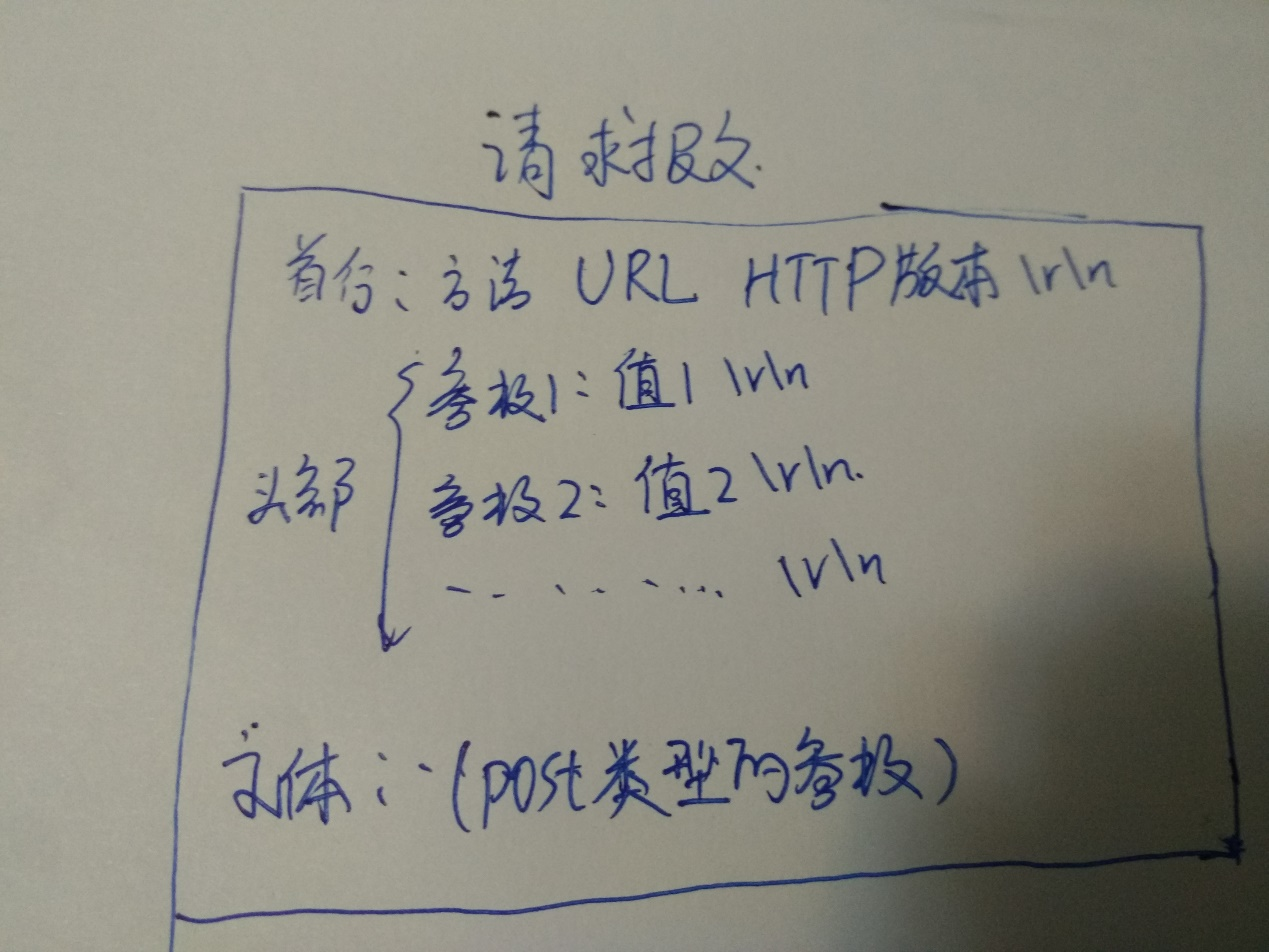 请求报文.
首行: 方法 URL HTTP版本 \r\n
参数1: 值1 \r\n
参数2: 值2 \r\n.
头部
........ \r\n
主体: (post类型的参数)